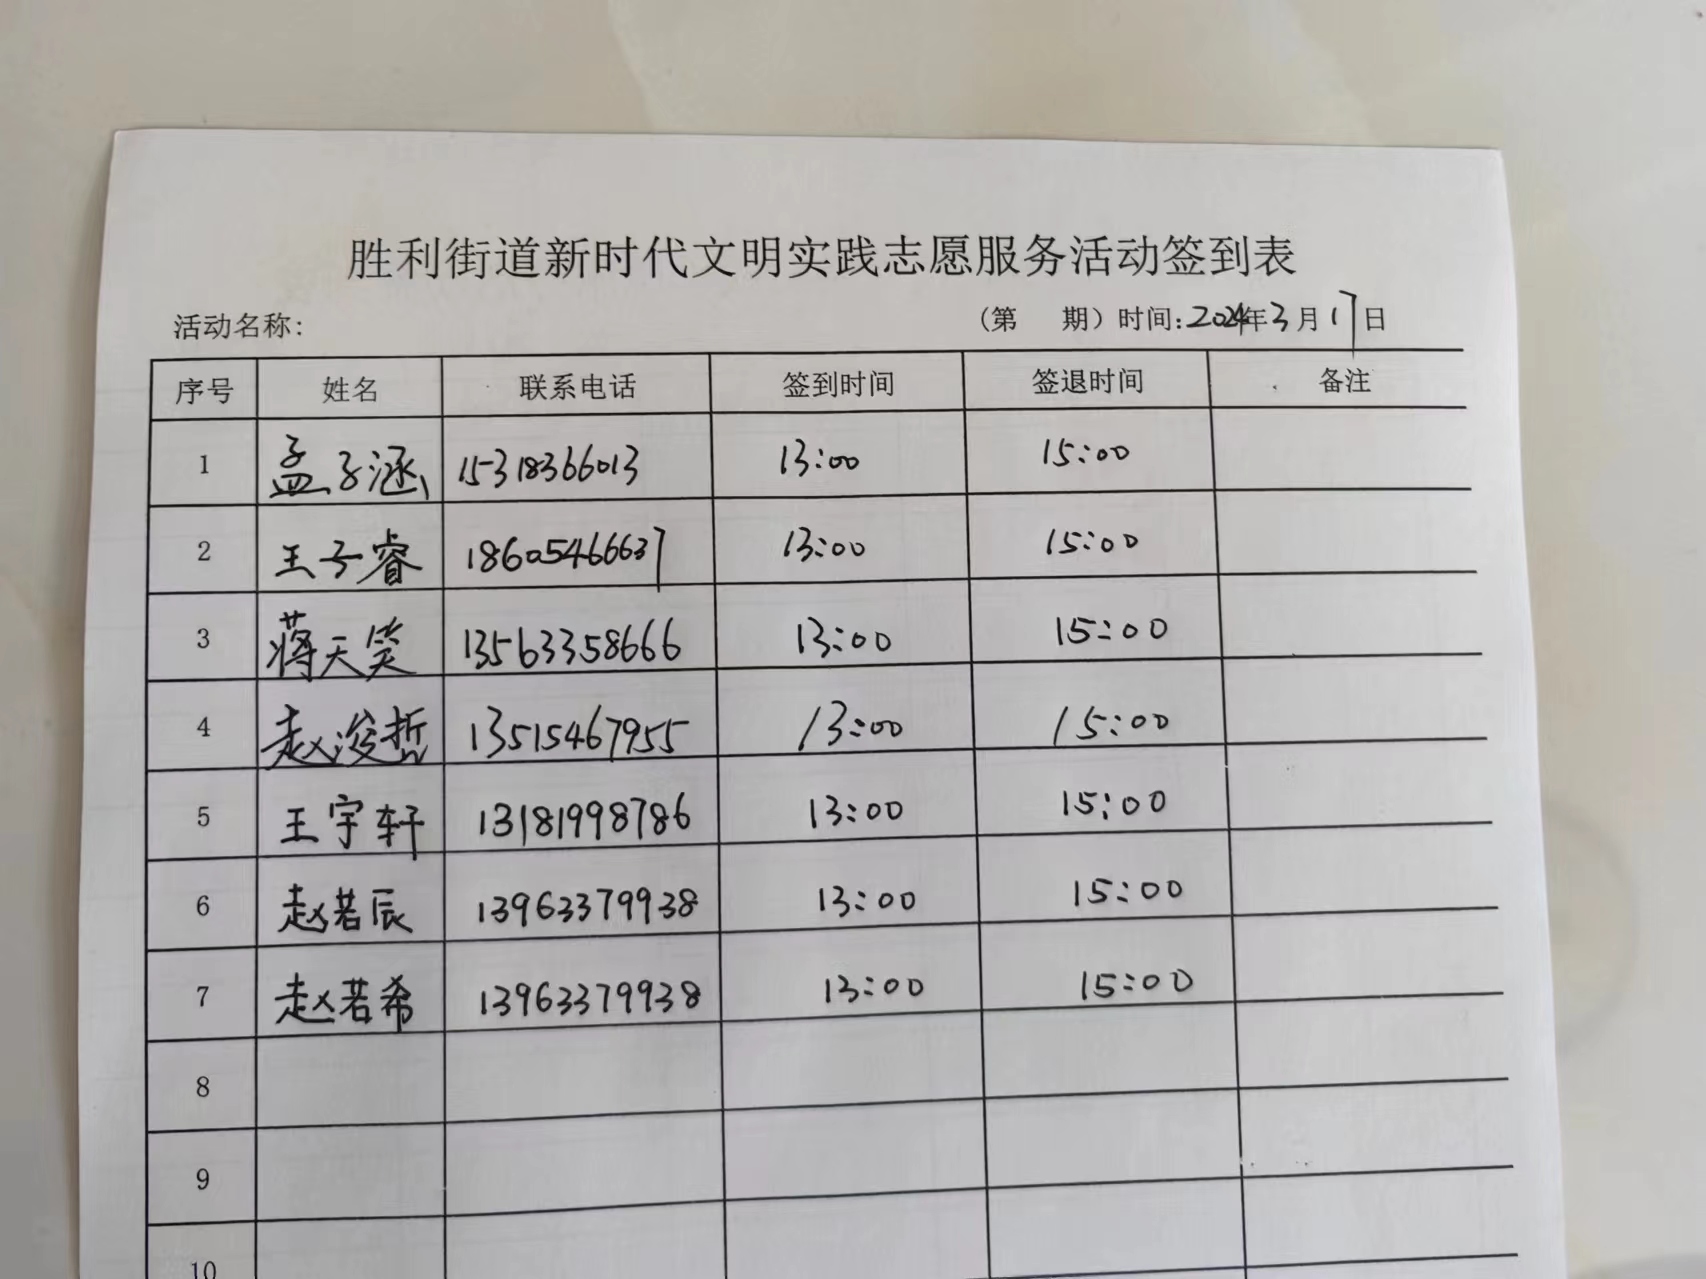 胜利街道新时代文明实践志愿服务活动签到表
活动名称: (第 期) 时间:2024年3月17日
序号 姓名 联系电话 签到时间 签退时间 备注
1 孟子涵 15318366013 13:00 15:00
2 王子睿 18605466637 13:00 15:00
3 蒋天笑 13563358666 13:00 15:00
4 赵浚哲 13515467955 13:00 15:00
5 王宇轩 13181998786 13:00 15:00
6 赵若辰 13963379938 13:00 15:00
7 赵若希 13963379938 13:00 15:00
8
9
10